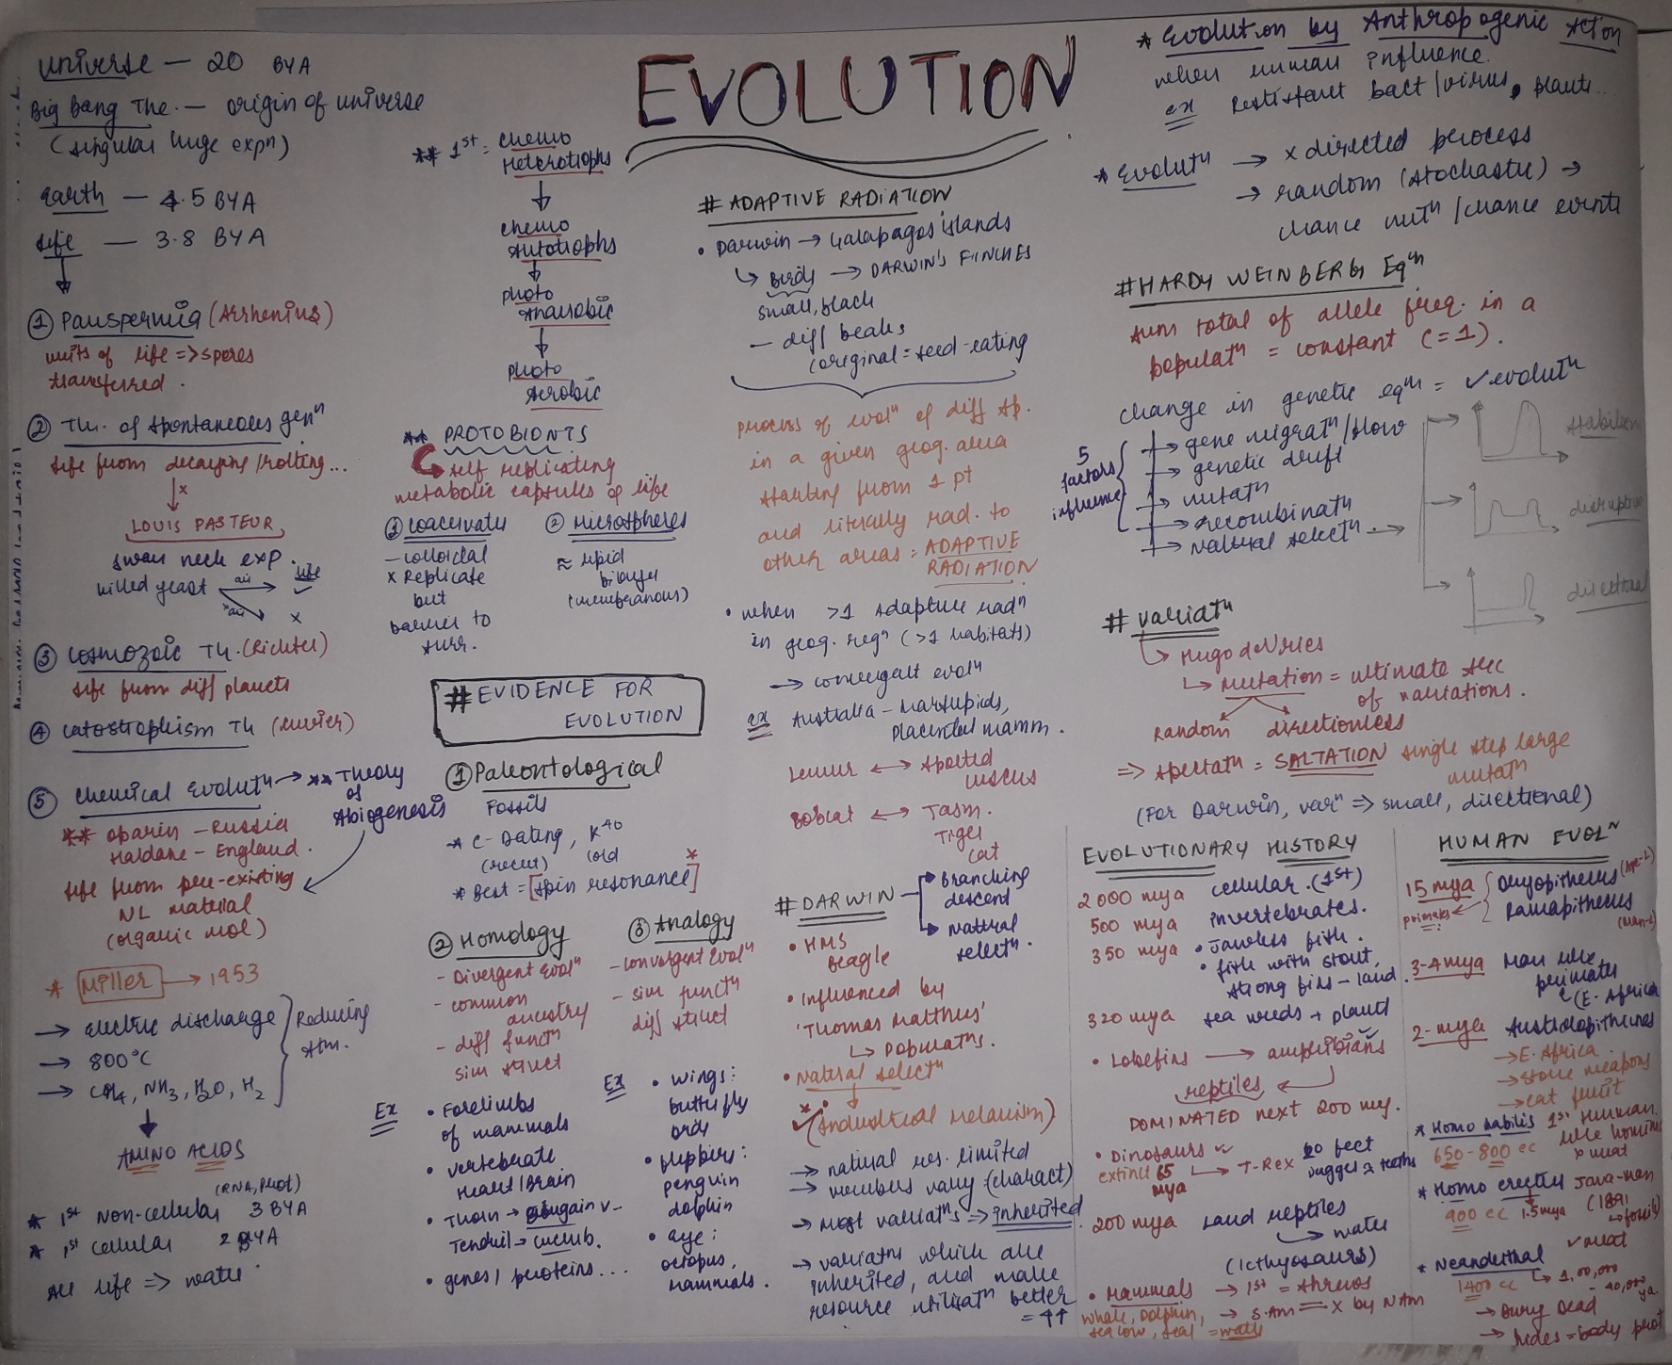 EVOLUTION
universe — 20 BYA
Big Bang The. — origin of universe
(singular huge expⁿ)
Earth — 4.5 BYA
life — 3.8 BYA
① Panspermia (Arrhenius)
units of life => spores
transferred.
② Th. of spontaneous genⁿ
life from decaying/rotting...
x
LOUIS PASTEUR
swan neck exp.
killed yeast air life ✓
x air x
③ Cosmozoic Th. (Richter)
life from diff planets
④ Catastrophism Th (Cuvier)
⑤ Chemical Evolutⁿ → ** Theory
of
Abiogenesis
** Oparin – Russia
Haldane – England.
life from pre-existing
NL material
(organic mol)
* Miller → 1953
→ Electric discharge
→ 800°C
→ CH₄, NH₃, H₂O, H₂
Reducing
Atm.
AMINO ACIDS
(RNA, Prot)
* 1st Non-cellular 3 BYA
* 1st cellular 2 BYA
All life => water
** 1st = Chemo
Heterotrophs
chemo
Autotrophs
photo
Anaerobic
photo
Aerobic
** PROTOBIONTS
self replicating
metabolic capsules of life
① coacervates
– colloidal
x Replicate
but
barrier to
surr.
② Microspheres
≈ lipid
bilayer
(membranous)
# EVIDENCE FOR
EVOLUTION
① Paleontological
Fossils
* C-Dating, K⁴⁰
(recent) (old
* Best = [spin resonance]*
② Homology
– Divergent Evolⁿ
– common
ancestry
– diff functⁿ
sim struct
Ex • Forelimbs
of mammals
• vertebrate
Heart/Brain
• Thorn → Bougainv–
Tendril → cucurb.
• genes/proteins...
③ Analogy
– convergent Evolⁿ
– sim functⁿ
diff struct
Ex • wings:
butterfly
bird
• flippers:
penguin
dolphin
• eye:
octopus,
mammals.
# ADAPTIVE RADIATION
• Darwin → Galapagos islands
↳ Birds → DARWIN'S FINCHES
small, black
– diff beaks
(original = seed-eating
process of evolⁿ of diff sp.
in a given geog. area
starting from 1 pt
and literally rad. to
other areas = ADAPTIVE
RADIATION
• when >1 Adaptive radⁿ
in geog. regⁿ (>1 habitats)
→ convergent evolⁿ
ex Australia – Marsupials,
Placental mamm.
Lemur ↔ spotted
cuscus
Bobcat ↔ Tasm.
Tiger
cat
# DARWIN
→ Branching
descent
→ Natural
selectⁿ.
• HMS
Beagle
• Influenced by
'Thomas Malthus'
↳ Populatⁿs.
• Natural selectⁿ
* (Industrial Melanism)
→ natural res. limited
→ members vary (charact)
→ most variatⁿs => inherited
→ variatⁿs which are
inherited, and make
resource utilisatⁿ better
= ↑↑
* Evolution by Anthropogenic Action
when human influence.
ex Resistant bact/virus, plants..
* Evolutⁿ → x directed process
→ random (stochastic) →
chance mutⁿ/chance events
# HARDY WEINBERG Eqᵐ
sum total of allele freq. in a
populatⁿ = constant (=1).
change in genetic eqᵐ = ✓ evolutⁿ
5
factors
influence
→ gene migratⁿ/flow
→ genetic drift
→ mutatⁿ
→ recombinatⁿ
→ natural selectⁿ →
stabilism
disruptive
directional
# Variatⁿ
↳ Hugo deVries
↳ Mutation = ultimate src
of variations.
Random directionless
=> speciatⁿ = SALTATION single step large
mutatⁿ
(For Darwin, varⁿ => small, directional)
EVOLUTIONARY HISTORY
2000 mya cellular. (1st)
500 mya invertebrates.
350 mya • Jawless fish.
• fish with stout,
strong fins – land
320 mya sea weeds + plants
• Lobefins → amphibians
reptiles
DOMINATED next 200 my.
• Dinosaurs
extinct 65
mya
→ T-Rex 20 feet
dagger teeth
200 mya Land reptiles
→ water
(Icthyosaurs)
• Mammals → 1st = shrews
→ S.Am = x by N Am
whale, Dolphin,
sea cow, seal = water
HUMAN EVOLᴺ
15 mya Dryopithecus (Ape-L)
primates Ramapithecus
(Man-L)
3-4 mya Man like
primates
(E. Africa
2-mya Australopithecines
→ E. Africa
→ stone weapons
→ eat fruit
* Homo habilis 1st Human
like hominid
650-800 cc x meat
* Homo erectus Java-man
900 cc 1.5mya (1891
→ fossils)
✓ meat
* Neanderthal
1400 cc → 1,00,000
40,000
ya.
→ Bury Dead
→ hides = body prot